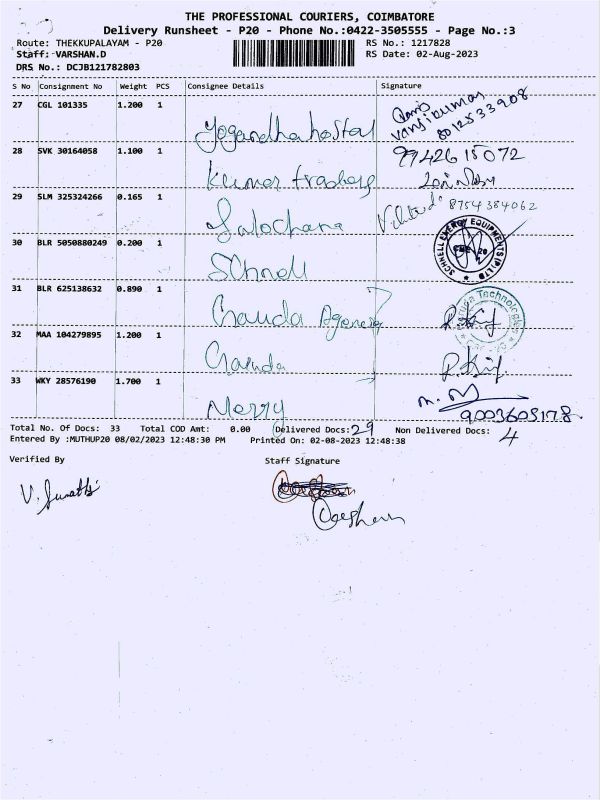 THE PROFESSIONAL COURIERS, COIMBATORE
Delivery Runsheet - P20 - Phone No.:0422-3505555 - Page No.:3
Route: THEKKUPALAYAM - P20 RS No.: 1217828
Staff: VARSHAN.D RS Date: 02-Aug-2023
DRS No.: DCJB121782803
S No Consignment No Weight PCS Consignee Details Signature
27 CGL 101335 1.200 1
8012533908
28 SVK 30164058 1.100 1 Kumar 9942615072
29 SLM 325324266 0.165 1 Sulochana 8754384062
30 BLR 5050880249 0.200 1 Schnell SCHNELL ENERGY EQUIPMENTS (P) LTD
31 BLR 625138632 0.890 1 Garuda Agency Garuda Technologies
32 MAA 104279895 1.200 1 Garuda
33 WKY 28576190 1.700 1 Merry
9003605178
Total No. Of Docs: 33 Total COD Amt: 0.00 Delivered Docs: 29 Non Delivered Docs: 4
Entered By :MUTHUP20 08/02/2023 12:48:30 PM Printed On: 02-08-2023 12:48:38
Verified By Staff Signature